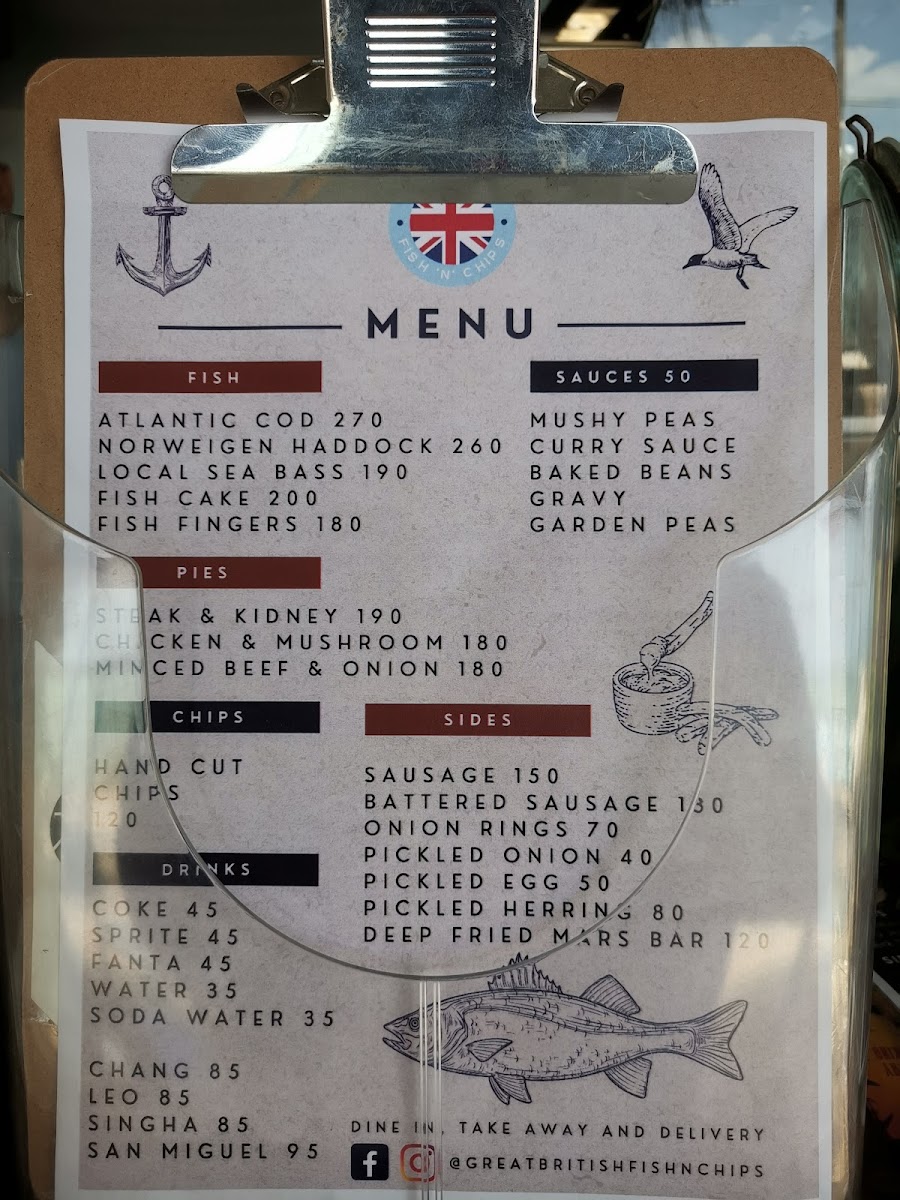 FISH 'N' CHIPS
MENU
FISH
ATLANTIC COD 270
NORWEIGEN HADDOCK 260
LOCAL SEA BASS 190
FISH CAKE 200
FISH FINGERS 180
SAUCES 50
MUSHY PEAS
CURRY SAUCE
BAKED BEANS
GRAVY
GARDEN PEAS
PIES
STEAK & KIDNEY 190
CHICKEN & MUSHROOM 180
MINCED BEEF & ONION 180
CHIPS
HAND CUT
CHIPS
120
SIDES
SAUSAGE 150
BATTERED SAUSAGE
ONION RINGS 70
PICKLED ONION 40
PICKLED EGG 50
PICKLED HERRING 80
DEEP FRIED MARS BAR 120
DRINKS
COKE 45
SPRITE 45
FANTA 45
WATER 35
SODA WATER 35
CHANG 85
LEO 85
SINGHA 85
SAN MIGUEL 95
DINE IN, TAKE AWAY AND DELIVERY
@GREATBRITISHFISHNCHIPS